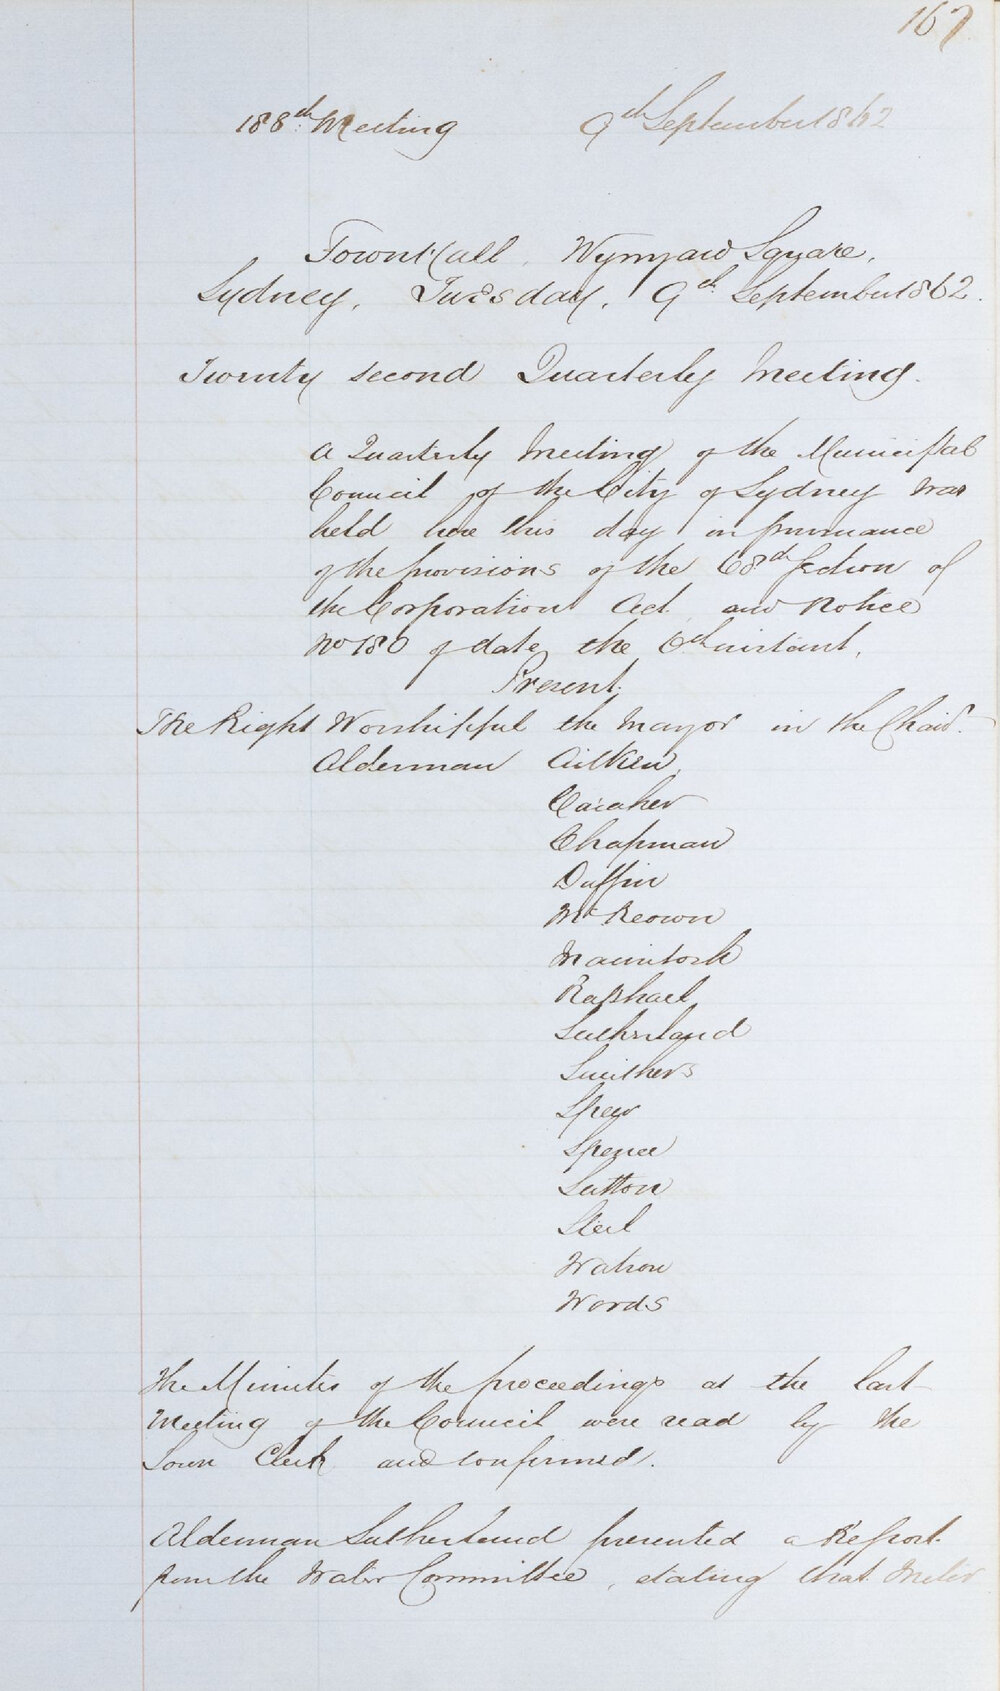 167
188th Meeting 9th September 1862
Town Hall, Wynyard Square,
Sydney, Tuesday, 9th September 1862.
Twenty second Quarterly Meeting.
A Quarterly Meeting of the Municipal
Council of the City of Sydney was
held here this day in pursuance
of the provisions of the 68th Section of
the Corporation Act and Notice
No 180 of date the 6th instant,
Present.
The Right Worshipful the Mayor in the Chair.
Alderman Aitken,
Caraher
Chapman
Duffin
McKeown
Macintosh
Raphael
Sutherland
Smithers
Speer
Spence
Sutton
Steel
Watson
Woods
The Minutes of the proceedings at the last
Meeting of the Council were read by the
Town Clerk and confirmed.
Alderman Sutherland presented a Report
from the Water Committee, stating that Meter